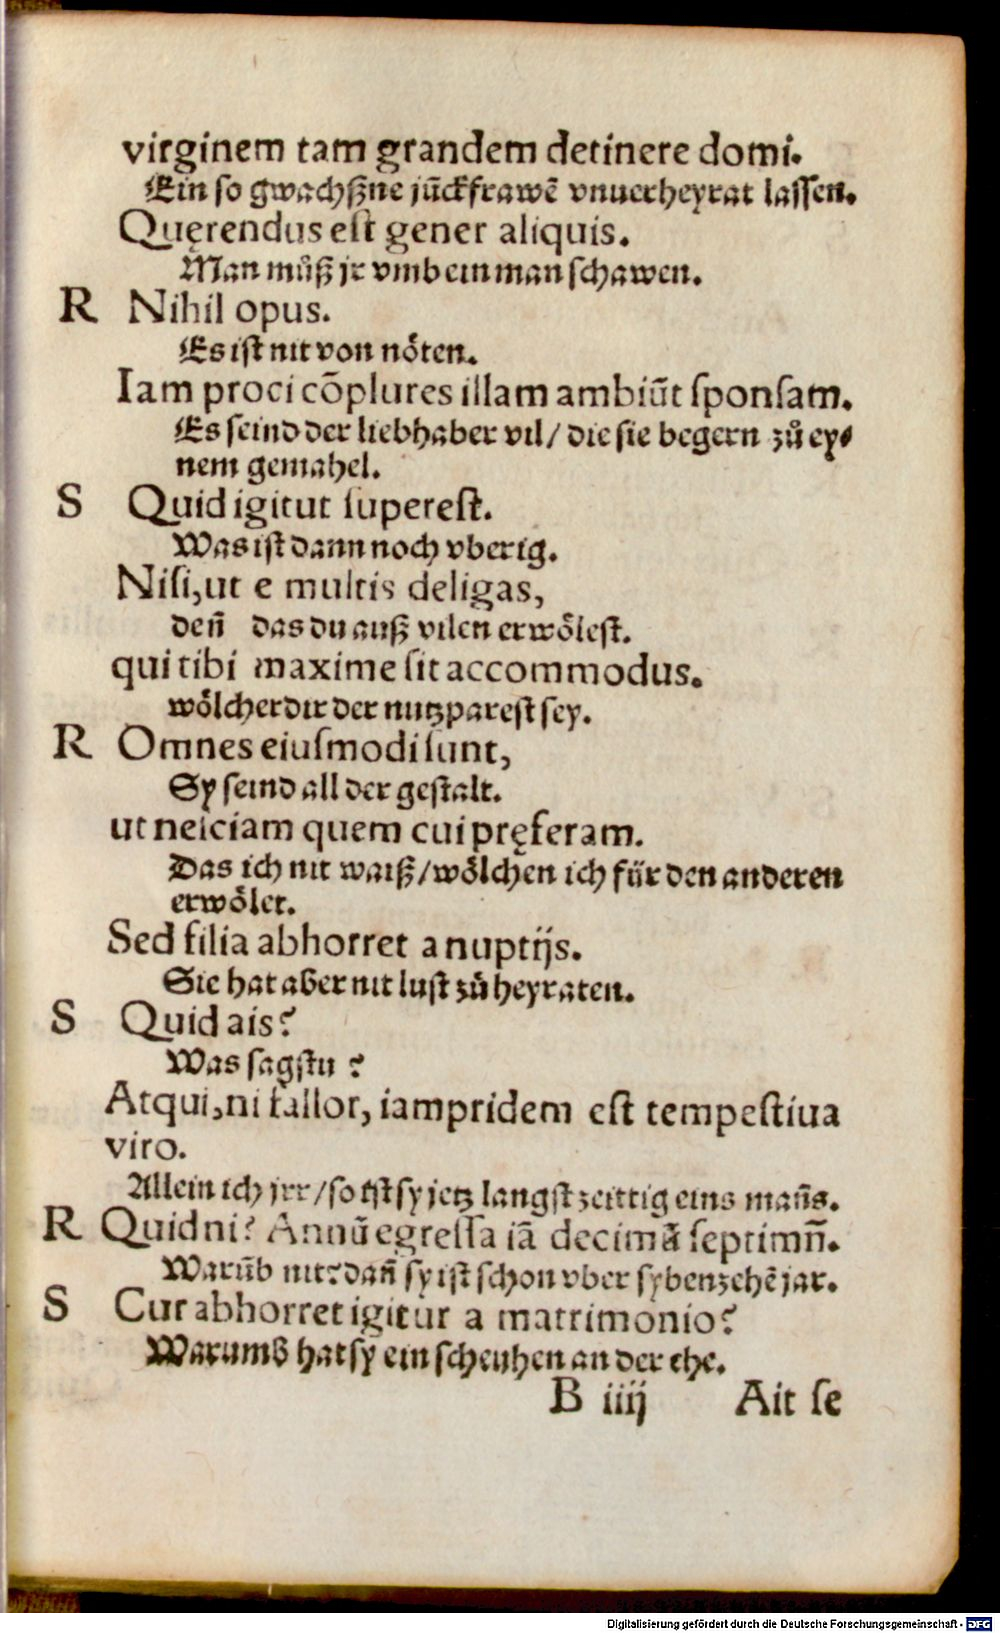 virginem tam grandem detinere domi.
Ein so gwachßne jũckfrawẽ vnuerheyrat lassen.
Quęrendus est gener aliquis.
Man můß jr vmb ein man schawen.
R Nihil opus.
Es ist nit von nôten.
Iam proci cõplures illam ambiũt sponsam.
Es seind der liebhaber vil/ die sie begern zů ey⸗
nem gemahel.
S Quid igitut superest.
Was ist dann noch vberig.
Nisi,ut e multis deligas,
deñ das du auß vilen erwôlest.
qui tibi maxime sit accommodus.
wôlcher dir der nutzparest sey.
R Omnes eiusmodi sunt,
Sy seind all der gestalt.
ut nesciam quem cui pręferam.
Das ich nit waiß/wôlchen ich für den anderen
erwôlet.
Sed filia abhorret a nuptijs.
Sie hat aber nit lust zů heyraten.
S Quid ais?
Was sagstu ?
Atqui,ni fallor, iampridem est tempestiua
viro.
Allein ich jrr/so ist sy jetz langst zeittig eins mañs.
R Quid ni? Annũ egressa iã decimũ septimũ.
Warũb nit? dañ sy ist schon vber sybenzehẽ jar.
S Cur abhorret igitur a matrimonio?
Warumb hat sy ein scheuhen an der ehe.
B iiij Ait se
Digitalisierung gefördert durch die Deutsche Forschungsgemeinschaft - DFG